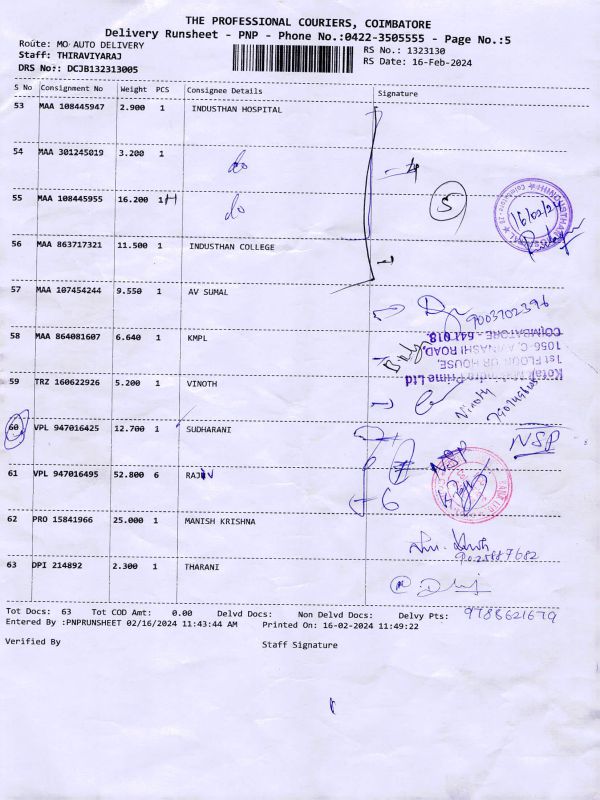 THE PROFESSIONAL COURIERS, COIMBATORE
Delivery Runsheet - PNP - Phone No.:0422-3505555 - Page No.:5
Route: MO AUTO DELIVERY RS No.: 1323130
Staff: THIRAVIYARAJ RS Date: 16-Feb-2024
DRS No:: DCJB132313005
S No Consignment No Weight PCS Consignee Details Signature
53 MAA 108445947 2.900 1 INDUSTHAN HOSPITAL
54 MAA 301245019 3.200 1 do
55 MAA 108445955 16.200 1 do
S
56 MAA 863717321 11.500 1 INDUSTHAN COLLEGE
57 MAA 107454244 9.550 1 AV SUMAL
9003702396
58 MAA 864081607 6.640 1 KMPL
COIMBATORE - 641 018.
1056-C, AVINASHI ROAD,
1st FLOOR, HOUSE,
Kotak Mahindra Prime Ltd
59 TRZ 160622926 5.200 1 VINOTH
Vinoth
60 VPL 947016425 12.700 1 SUDHARANI
NSP
61 VPL 947016495 52.800 6 RAJIV
6 NSP
62 PRO 15841966 25.000 1 MANISH KRISHNA
63 DPI 214892 2.300 1 THARANI
Tot Docs: 63 Tot COD Amt: 0.00 Delvd Docs: Non Delvd Docs: Delvy Pts: 9788621679
Entered By :PNPRUNSHEET 02/16/2024 11:43:44 AM Printed On: 16-02-2024 11:49:22
Verified By Staff Signature